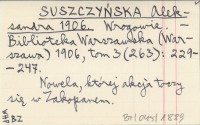 SUSZCZYŃSKA Alek-
sandra 1906. Wrogowie.
Biblioteka Warszawska (War-
szawa) 1906, tom 3 (263): 229-
-247.
Nowela, której akcja toczy
się w Zakopanem.
BZ